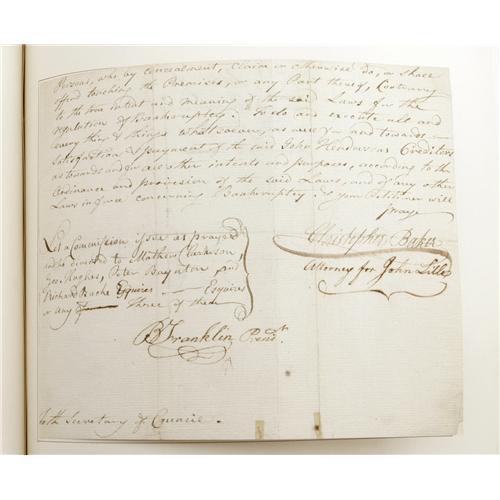 Persons, who by concealment, Claim or otherwise do, or Shall
offend touching the Premises, or any Part thereof, Contrary
to the true intent and meaning of the said Laws for the
regulation of Bankruptcy. To do and execute all and
every thing & things whatsoever, as well for and towards
Satisfaction & payment of the said John Creditors
as towards and for all other intents and purposes, according to the
Ordinance and provision of the said Laws, and of any other
Laws in force concerning Bankruptcy. & your Petitioner will
pray
Christopher Baker
Attorney for John
Let a Commission issue as prayed
and be directed to Mathew Clarkson,
Geo: Hughes, Peter Baynton and
Richard Bache Esquires Esquires
or any of Three of them
B Franklin Presdt.
Secretary of Council.